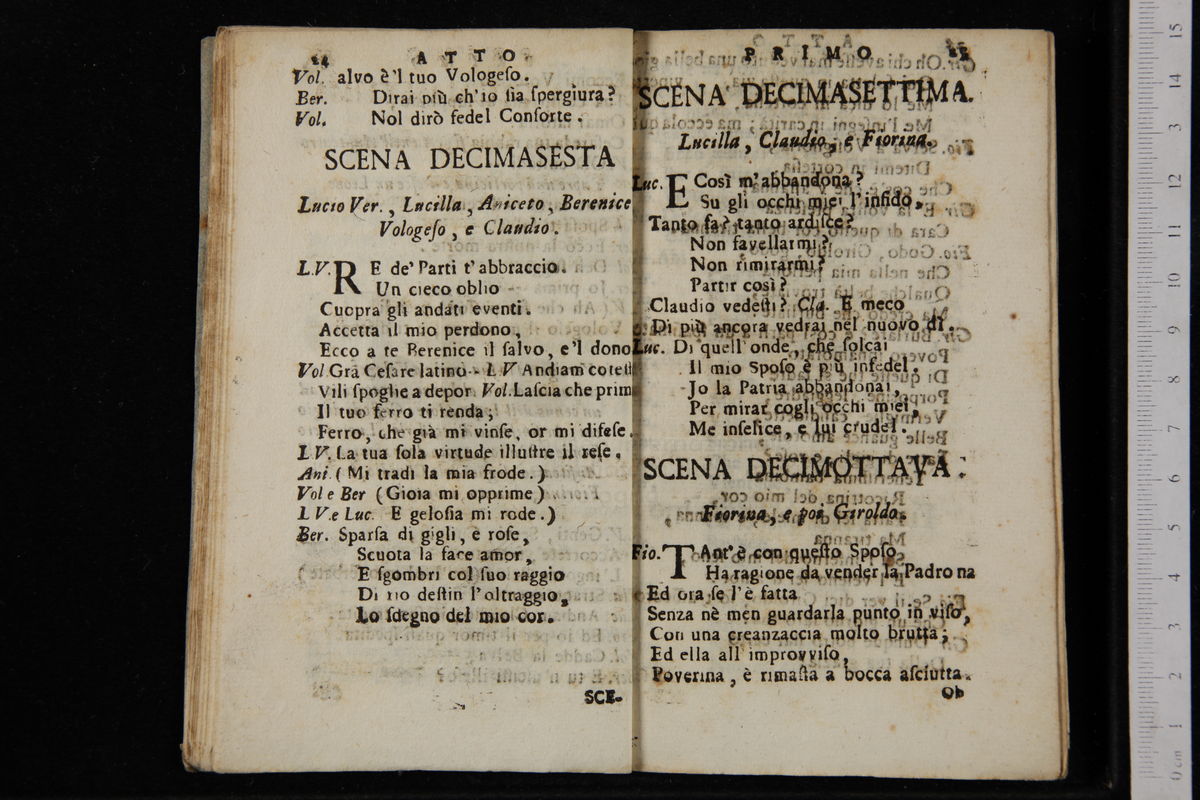 24 ATTO
Vol. alvo è'l tuo Vologeſo.
Ber. Dirai più ch'io ſia ſpergiura?
Vol. Nol dirò fedel Conſorte.
SCENA DECIMASESTA
Lucio Ver., Lucilla, Aniceto, Berenice
Vologeſo, e Claudio.
L.V. RE de' Parti t'abbraccio.
Un cieco oblio
Cuopra gli andati eventi.
Accetta il mio perdono.
Ecco a te Berenice il ſalvo, e'l dono
Vol Gra Ceſare latino. L V Andiam coteſt
Vili ſpoglie a depor. Vol. Laſcia che prim
Il tuo ferro ti renda;
Ferro, che già mi vinſe, or mi difeſe.
L V. La tua ſola virtude illuſtre il reſe.
Ani. (Mi tradì la mia frode.)
Vol e Ber (Gioia mi opprime)
L V.e Luc. E geloſia mi rode.)
Ber. Sparſa di gigli, e roſe,
Scuota la face amor,
E ſgombri col ſuo raggio
Di rio deſtin l'oltraggio,
Lo ſdegno del mio cor.
SCE-
PRIMO 25
SCENA DECIMASETTIMA.
Lucilla, Claudio, e Fiorina.
Luc. E Così m'abbandona?
Su gli occhi miei l'infido,
Tanto fa? tanto ardiſce?
Non favellarmi?
Non rimirarmi?
Partir così?
Claudio vedeſti? Cla. E meco
Di più ancora vedrai nel nuovo dì.
Luc. Di quell'onde, che ſolcai
Il mio Spoſo è più infedel.
Jo la Patria abbandonai,
Per mirar cogli occhi miei,
Me infelice, e lui crudel.
SCENA DECIMOTTAVA.
Fiorina, e poi Giroldo.
Fio. TAnt'è con queſto Spoſo,
Ha ragione da vender la Padrona
Ed ora ſe l'è fatta
Senza nè men guardarla punto in viſo,
Con una creanzaccia molto brutta;
Ed ella all'improvviſo,
Poverina, è rimaſta a bocca aſciutta.
Oh